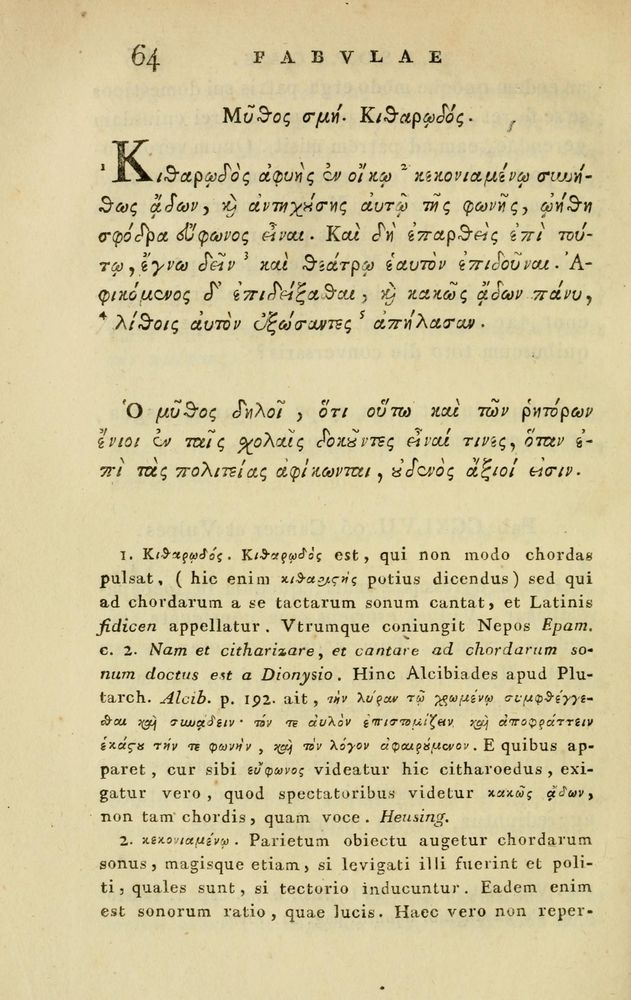 64 FABVLAE
Μῦθος σμή. Κιθαρῳδός.
1 Κιθαρῳδὸς ἀφυὴς ἐν οἴκῳ 2 κεκονιαμένῳ συνή-
θως ᾄδων, καὶ ἀντηχούσης αὐτῷ τῆς φωνῆς, ᾠήθη
σφόδρα εὔφωνος εἶναι. Καὶ δὴ ἐπαρθεὶς ἐπὶ τού-
τῳ, ἔγνω δεῖν 3 καὶ θεάτρῳ ἑαυτὸν ἐπιδοῦναι. Ἀ-
φικόμενος δ' ἐπιδείξασθαι, καὶ κακῶς ᾄδων πάνυ,
4 λίθοις αὐτὸν ἐξώσαντες 5 ἀπήλασαν.
Ὁ μῦθος δηλοῖ, ὅτι οὕτω καὶ τῶν ῥητόρων
ἔνιοι ἐν ταῖς σχολαῖς δοκοῦντες εἶναί τινες, ὅταν ἐ-
πὶ τὰς πολιτείας ἀφίκωνται, οὐδενὸς ἄξιοί εἰσιν.
1. Κιθαρῳδός. Κιθαρῳδὸς est, qui non modo chordas
pulsat, (hic enim κιθαριστὴς potius dicendus) sed qui
ad chordarum a se tactarum sonum cantat, et Latinis
fidicen appellatur. Vtrumque coniungit Nepos Epam.
c. 2. Nam et citharizare, et cantare ad chordarum so-
num doctus est a Dionysio. Hinc Alcibiades apud Plu-
tarch. Alcib. p. 192. ait, τὴν λύραν τῷ χρωμένῳ συμφθέγγε-
σθαι καὶ συνᾴδειν· τὸν τε αὐλὸν ἐπιστομίζειν καὶ ἀποφράττειν
ἑκάστου τήν τε φωνὴν, καὶ τὸν λόγον ἀφαιρούμενον. E quibus ap-
paret, cur sibi εὔφωνος videatur hic citharoedus, exi-
gatur vero, quod spectatoribus videtur κακῶς ᾄδων,
non tam chordis, quam voce. Heusing.
2. κεκονιαμένῳ. Parietum obiectu augetur chordarum
sonus, magisque etiam, si levigati illi fuerint et poli-
ti, quales sunt, si tectorio inducuntur. Eadem enim
est sonorum ratio, quae lucis. Haec vero non reper-